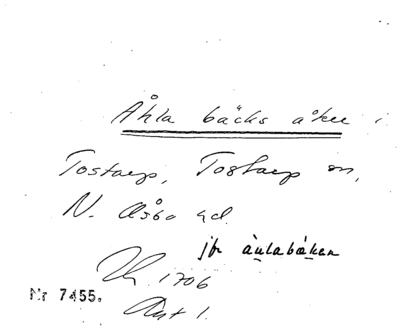 Åhla bäcks åker i
Tostarp, Tostarp sn,
N. Åsbo hd.
jfr àulabäken
1706
Akt 1.
Nr 7455.